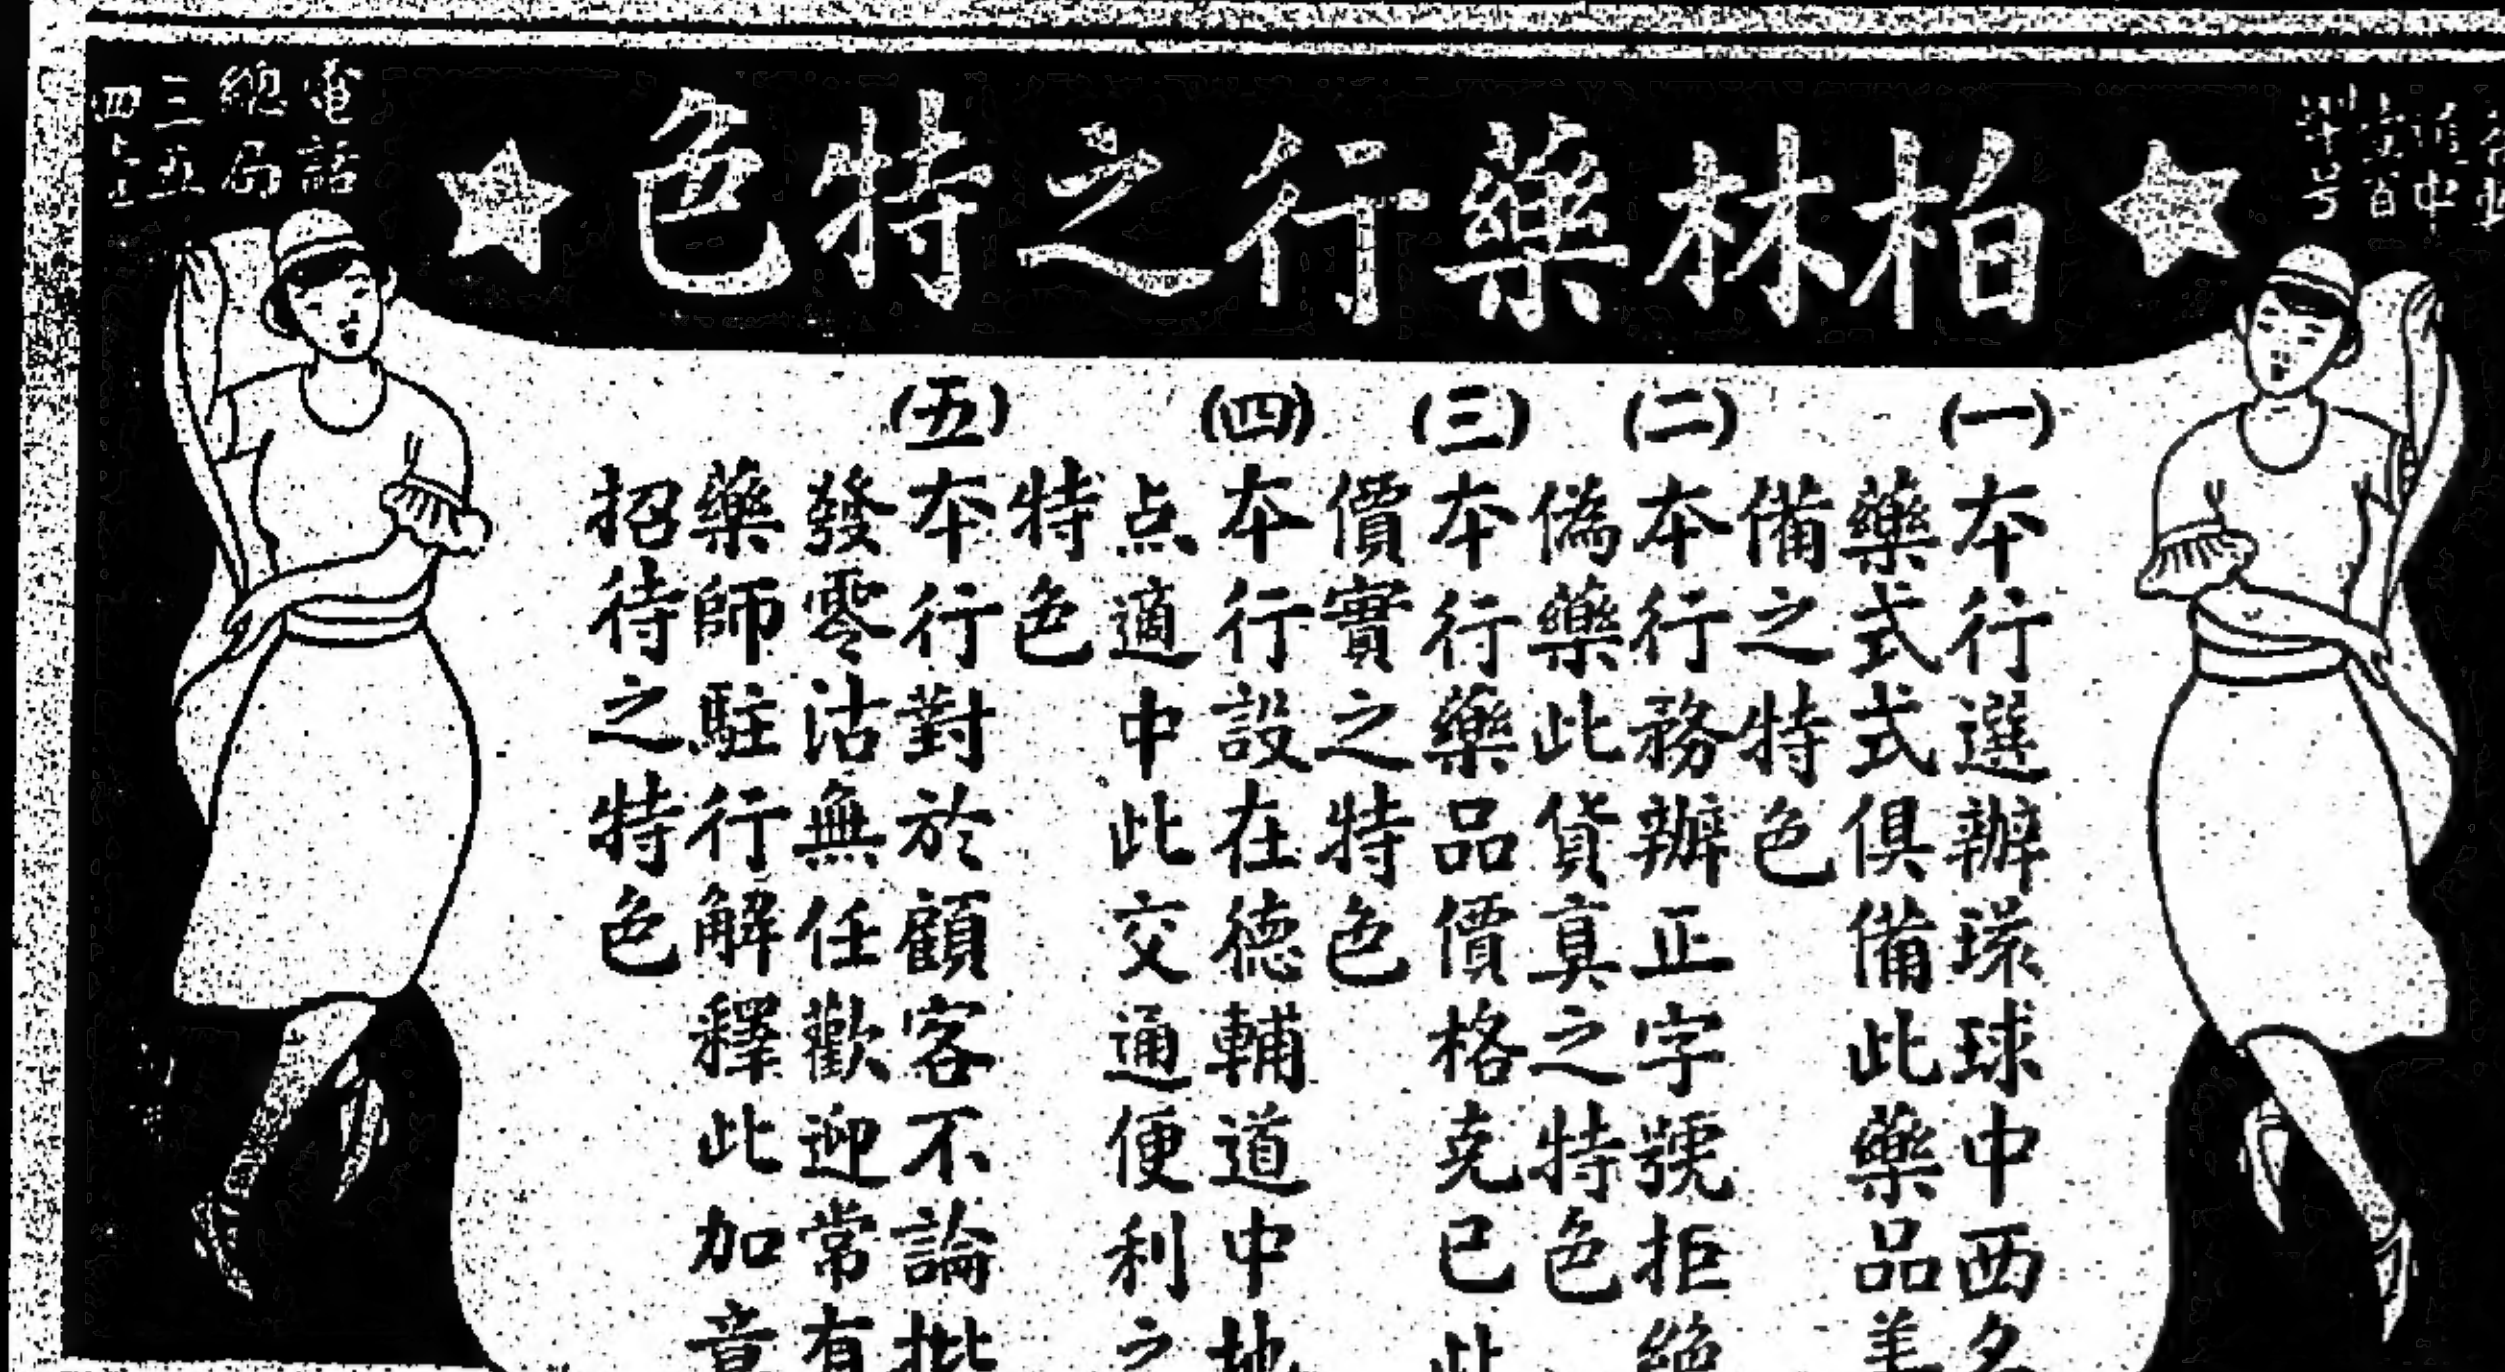 柏林藥行之特色
道中
壹百
四十号
電話
總局
三五
四
(一)本行選辦環球中西名
藥式式俱備此藥品美
備之特色
(二)本行務辦正字號拒絕
偽藥此貨真之特色
(三)本行藥品價格克己此
價實之特色
(四)本行設在德輔道中地
点適中此交通便利之
特色
(五)本行對於顧客不論批
發零沽無任歡迎常有
藥師駐行解釋此加意
招待之特色